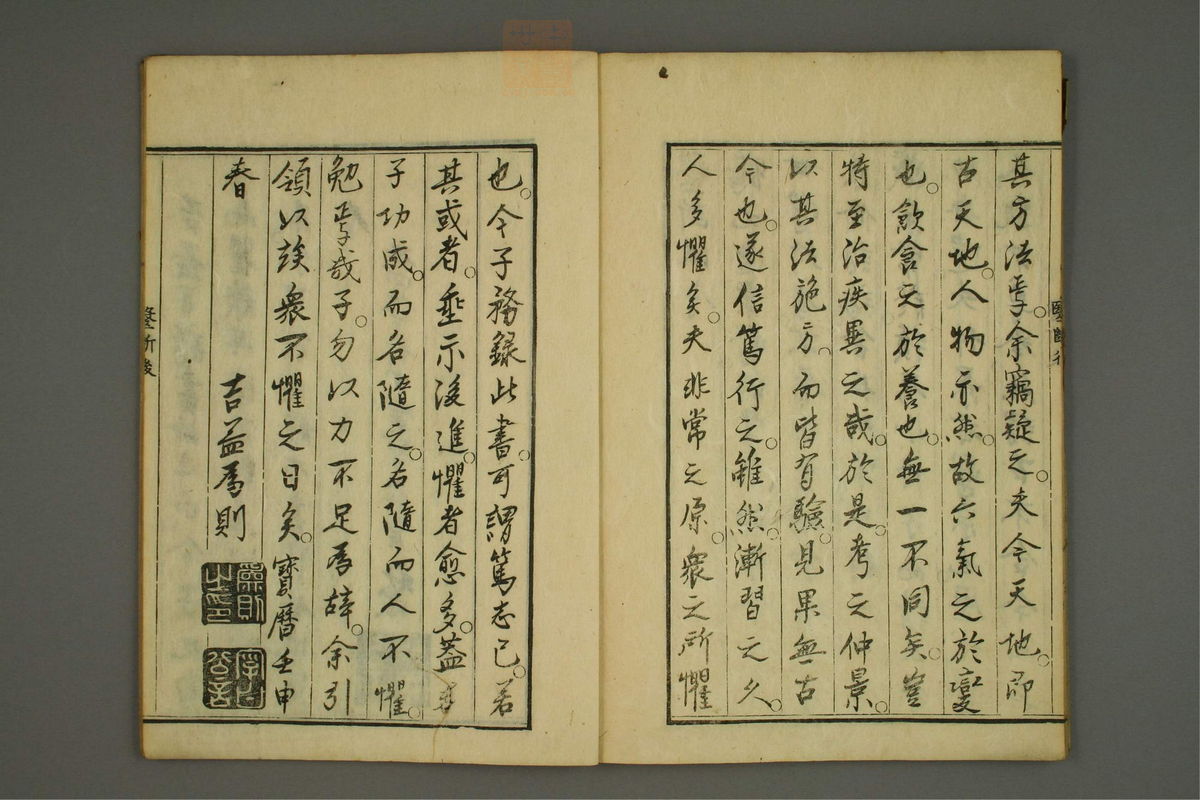 其方法焉。余竊疑之。夫今天地。即
古天地。人物亦然。故六氣之於變
也。飲食之於養也。無一不同矣。豈
特至治疾異之哉。於是。考之仲景。
以其法施方。而皆有驗。見果無古
今也。遂信篤行之。雖然。漸習之久。
人多懼矣。夫非常之原。衆之所懼
也。今子務錄此書。可謂篤志已。若
其或者。垂示後進。懼者愈多。蓋
子功成。而名隨之。名隨而人不懼。
勉焉哉。子勿以力不足為辭。余引
領以竢衆不懼之日矣。寶曆壬申
春　吉益為則
為則之印
字曰公言
醫斷後